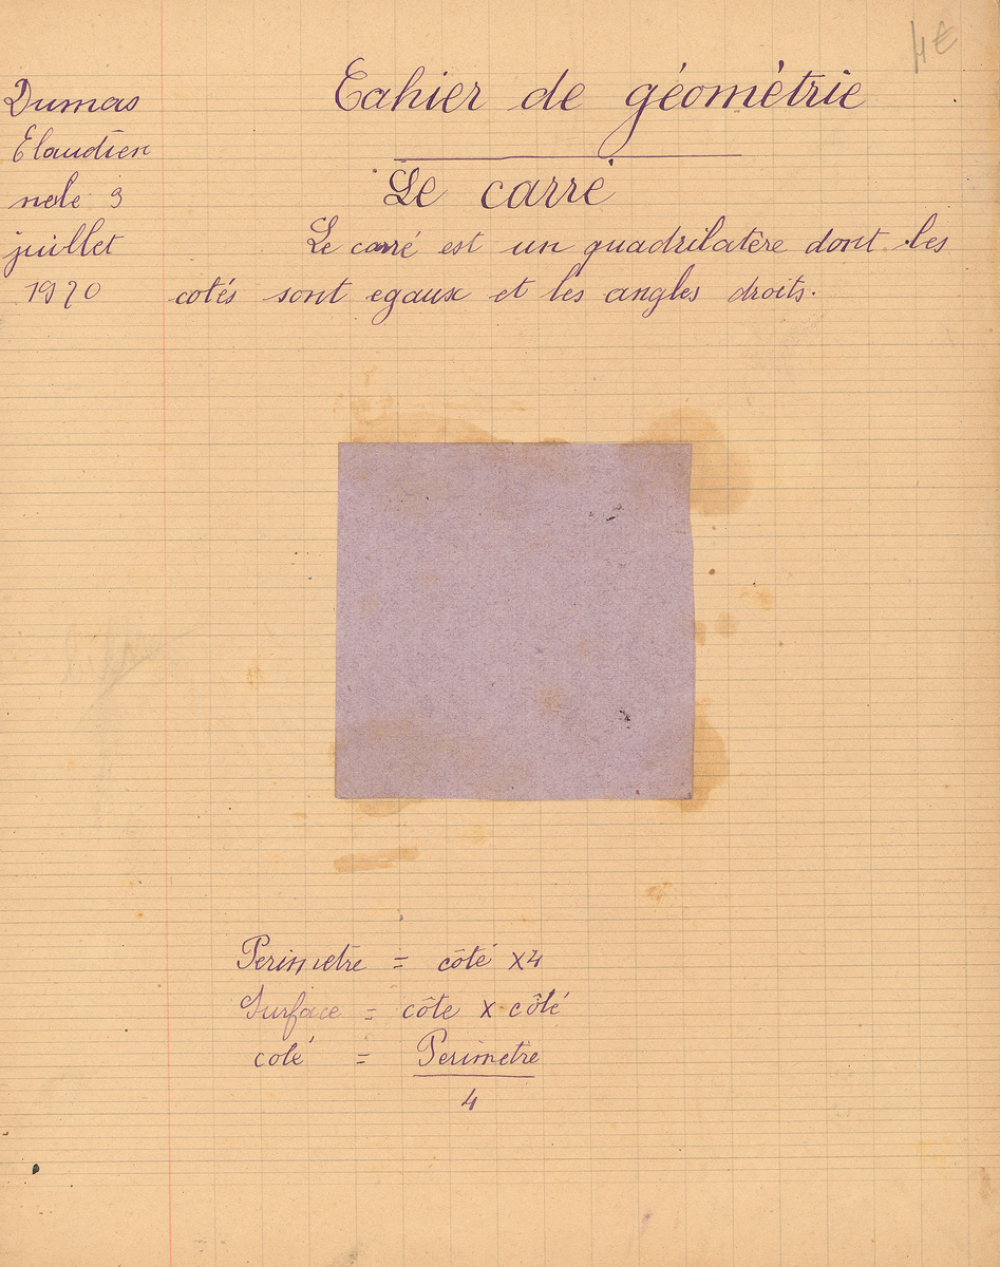 4€
Cahier de géométrie
Dumas
Claudien
nele 3
juillet
1920
Le carré
Le carré est un quadrilatère dont les
cotés sont egaux et les angles droits.
Perimetre = côté x4
Surface = côte x côté
coté = Perimetre
4